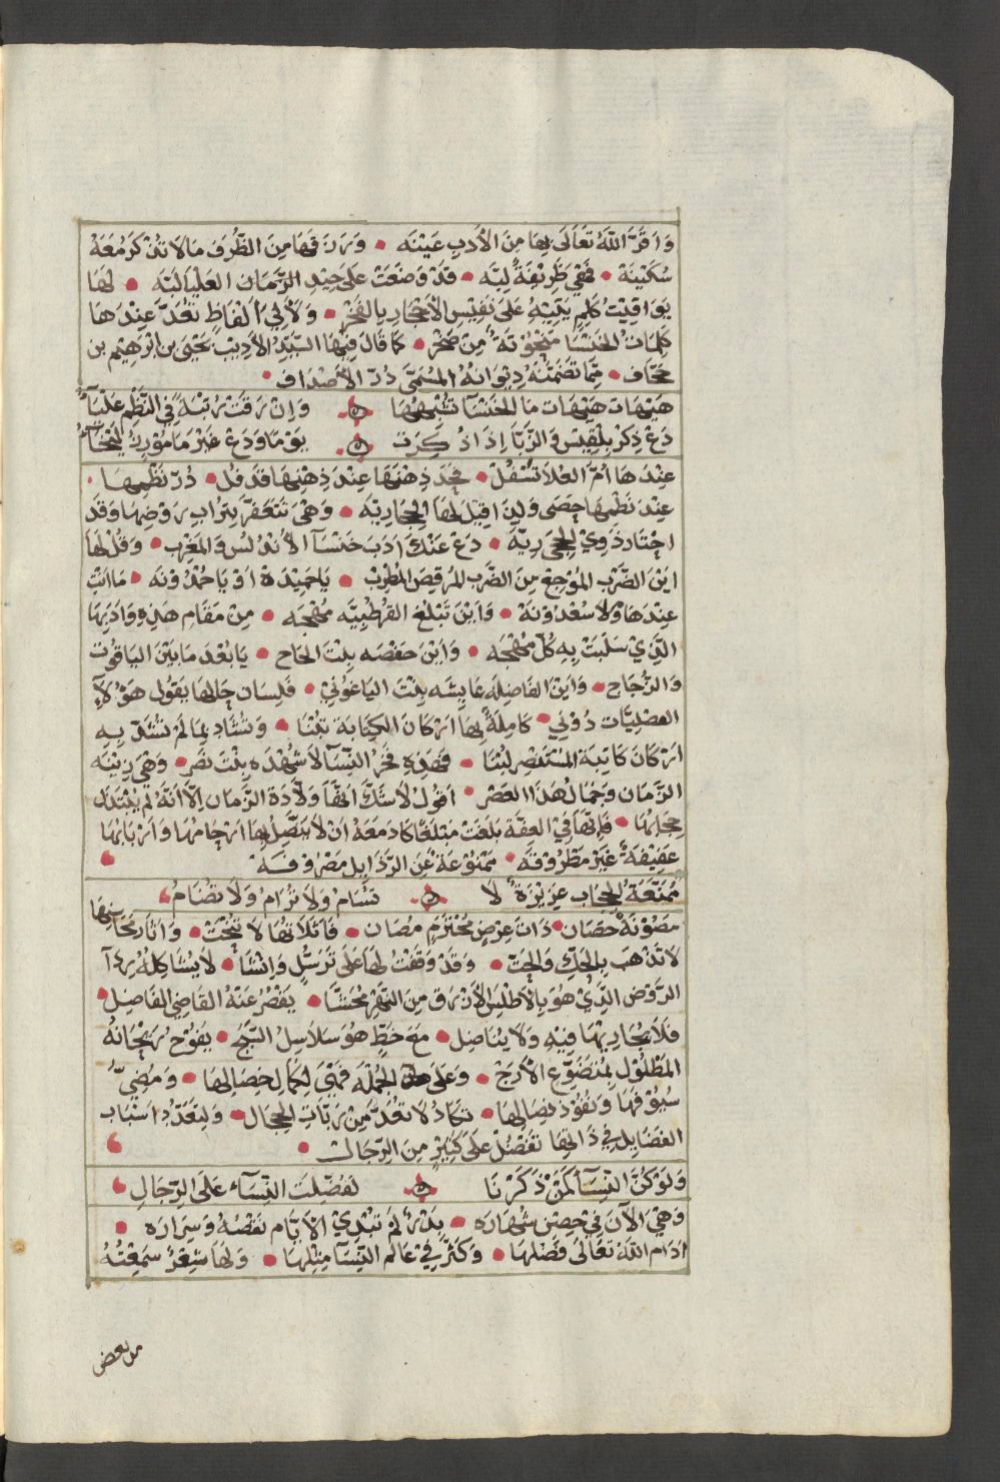 وَاَقَرَّ اللّٰهُ تَعَالَى بِهَا مِنَ الْأَدَبِ عَيْنَه • وَرَزَقَهَا مِنَ الظُّرَفِ مَا لَا تُذْكَرُ مَعَهُ
سُكَيْنَة • فَهِيَ ظَرِيْفَةٌ لَبِيَّه • قَدْ وَضَعَتْ عَلَى جِيْدِ الزَّمَانِ العَلْيَا لَبَّه • لَهَا
يَوَاقِيْتُ كَلِمٍ يَتِيْهُ عَلَى نَفِيْسِ الْأَحْجَارِ بِالفَخْرِ • وَلَآلِيْ اَلْفَاظٍ تُعَدُّ عِنْدَهَا
كَلِمَاتُ الخَنْسَا مَنْحُوْتَةً مِنْ صَخْرٍ • كَمَا قَالَ فِيْهَا السَّيِّدُ الْأَدِيْبُ يَحْيَى بن اِبْرَهِيْم بن
جَحَّاف • مِمَّا تَضَمَّنَهُ دِيْوَانُهُ المُسَمَّى دُرّ الْأَصْدَاف •
هَيْهَاتَ هَيْهَات مَا الخَنْسَآ تُشْبِهُهَا وَاِنْ رَقَتْ رُتْبَةً فِي النَّظْمِ عَلْيَآءُ
دَعْ ذِكْرَ بِلْقِيْسَ وَالزَّبَّا اِذَا ذُكِرَت يَوْمًا وَدَعْ
عِنْدَهَا اُمّ العُلَا تَسْفُلْ • حَدّ ذِهْنِهَا عِنْدَ ذِهْنِهَا قَدْ فُل • دُرّ نَظْمِهَا •
عِنْدَ نَظْمِهَا حَصَى وَلَيِن اقِيْلَ لَهَا الحِجَارِيّه • وَهْيَ تَتَعَفَّرُ بِتُرَابِ رَوْضِهَا وَقَد
اخْتَارَ ذَوِيْ الحِجَى رِيَّه • دَعْ عَنْكَ اَدَبَ خَنْسَآ الْأَنْدَلُس وَالمَغْرِب • وَقُلْ لَهَا
اَيْنَ الضَّرْب المُوْجِع مِنَ الضَّرَبِ المُرْقِصِ المُطْرِبْ • يَا حَمِيْدَة اَوْ يَا حَمْدُوْنَه • مَا اَنْتِ
عِنْدَهَا وَلَا سَعْدُوْنَة • وَاَيْنَ تَبْلُغ القُرْطُبِيَّه مُهْجَه • مِنْ مَقَامِ هَذِهِ وَادَبِهَا
الَّذِيْ سَلَبَتْ بِهِ كُلَّ مُهْجَه • وَاَيْنَ حَفْصَه بِنْتَ الحَاج • يَا بُعْدَ مَا بَيْنَ اليَاقُوْت
وَالزُّجَاج • وَاَيْنَ الفَاضِلَه عَايِشَه بِنْتَ البَاعُوْنِيْ • فَلِسَان حَالِهَا يَقُول هَؤُلَآء
الفَضْلِيَّات دُوْنِي • كَامِلَةٌ لَهَا اَرْكَان الكِتَابَة تُبْنَا • وَتُشَاد بِمَا لَمْ تُشَدّ بِهِ
اَرْكَان كَاتِبَة المُسْتَنْصِر لُبْنَا • فَهَذِهِ فَخْرُ النِّسَآ لَا شُهْدَه بِنْت نَصْر • وَهْيَ زِيْنَه
الزَّمَان وَجَمَال هَذَا العَصْر • اَقُوْل لَا شَكَّ اَنَّهَا وَلَّادَة الزَّمَان اِلَّا اَنَّهُ لَمْ يُبْتَذَل
حِجَابُهَا • فَاِنَّهَا فِي العِفَّة بَلَغَتْ مَبْلَغًا كَادَ مَعَهُ اَنْ لَا يَتَّصِلَ بِهَا اَرْحَامُهَا وَاَرْبَابُهَا
عَفِيْفَةٌ غَيْر مَطْرُوْفَه • مَمْنُوْعَة عَنِ الرَّذَايِل مَصْرُوْفَه •
مُمَنَّعَةُ الحِجَاب عَزِيْزَةٌ لَا تُسَام وَلَا تُرَامُ وَلَا تُضَامُ
مَصُوْنَةٌ حَصَان • ذَات عِرْضٍ مُحْتَرَمٍ مُصَان • فَاَثَلَاتُهَا لَا تُنْحَتْ • وَاٰثَار مَحَاسِنِهَا
لَا تَذْهَب بِالحَكِّ وَالحَتّ • وَقَدْ وَقَفْتُ لَهَا عَلَى تَرَسُّلٍ وَاِنْشَا • لَا يُشَاكِلُهُ رِدَآ
الرَّوْضِ الَّذِيْ هُوَ بِالْأَطْلَسِ الْأَزْرَق مِنَ النَّهَر مُحَشَّا • يَقْصُرُ عَنْهُ القَاضِي الفَاضِل •
فَلَا يُجَارِيْهَا فِيْهِ وَلَا يُنَاضِل • مَعَ خَطٍّ هُوَ سَلَاسِلُ السَّبَجِ • يَفُوْحُ رَيْحَانُهُ
المَطْلُوْلُ بِمُتَضَوِّعِ الْأَرَجْ • وَعَلَى الجُمْلَه فَهْيَ لِكَمَالِ خِصَالِهَا • وَمُضِيِّ
سُيُوْفِهَا وَنُفُوْذ نِصَالِهَا • تَكَادُ لَا تُعَدُّ مِنْ رَبَّاتِ الحِجَال • وَلِتَعَدُّدِ اَسْبَاب
الفَضَايِل فِيْ ذَاتِهَا تَفْضُلُ عَلَى كَثِيْرٍ مِنَ الرِّجَالْ •
وَلَوْ كُنَّ النِّسَآ كَمَنْ ذَكَرْنَا لَفُضِّلَتِ النِّسَآء عَلَى الرِّجَالِ
وَهْيَ الْآنَ فِيْ حِصْن شُهَارَه • بَدْرٌ لَمْ تُبْدِي الْأَيَّام نَقْصَهُ وَسِرَارَه •
اَدَامَ اللّٰهُ تَعَالَى فَضْلَهَا • وَكَثَّرَ فِيْ عَالَمِ النِّسَآ مِثْلَهَا • وَلَهَا شِعْرٌ سَمِعْتُهُ
من بعض